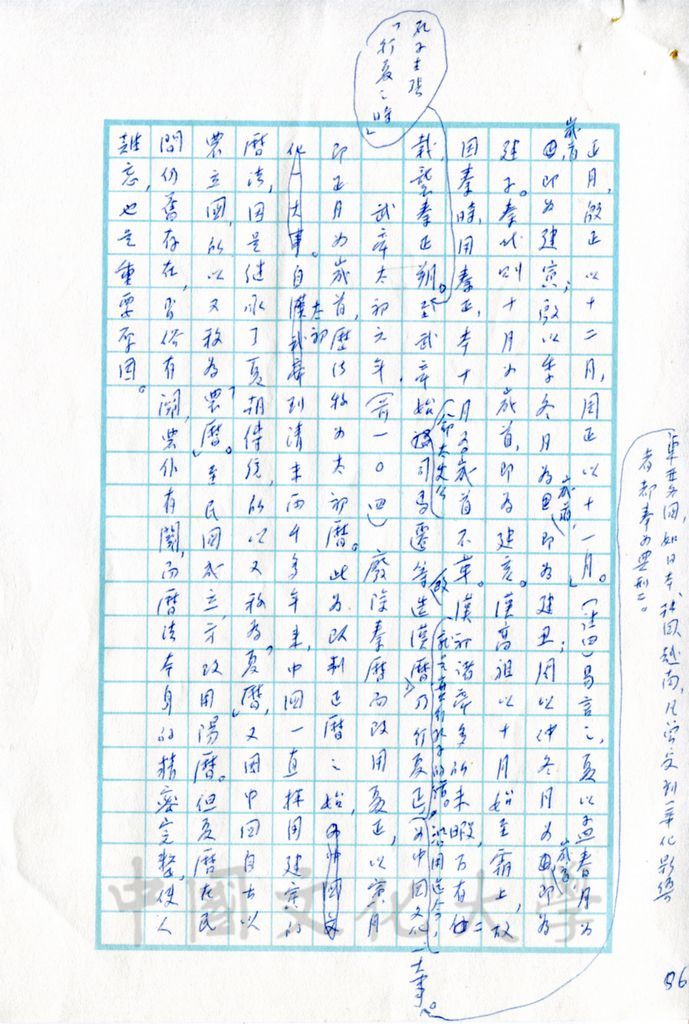 正月，殷正以十二月，周正以十一月。」（註四）易言之，夏以孟春月為
歲首，即為建寅；殷以季冬月為歲首，即為建丑；周以仲冬月為歲首，即為
建子。秦代則十月為歲首，即為建亥。漢高祖以十月始至霸上，故
因秦時，用秦正，本十月為歲首不革。漢初諸帝多所未暇，
孔子主張
「行夏之時」
襲秦正朔。至武帝始（命太史公）司馬遷等造漢曆，乃行夏正，沿用迄今，為中國文化一大事。
東亞各國，如日本韓國越南，凡曾受到華化影響
者都奉為典型。
武帝太初元年，（前一○四）廢除秦曆而改用夏正，以寅月
即正月為歲首，曆法稱為太初曆。此為改制正曆之始，
化一大事。自漢武帝太初到清末兩千多年來，中國一直採用建寅的
曆法，因是繼承了夏朝傳統，所以又稱為「夏曆」，又因中國自古以
農立國，所以又稱為「農曆」。至民國成立，方改用陽曆。但夏曆在民
間仍舊存在，習俗有關，農作有關，而曆法本身的精密完整，使人
難忘，也是重要原因。
中國文化大學
86